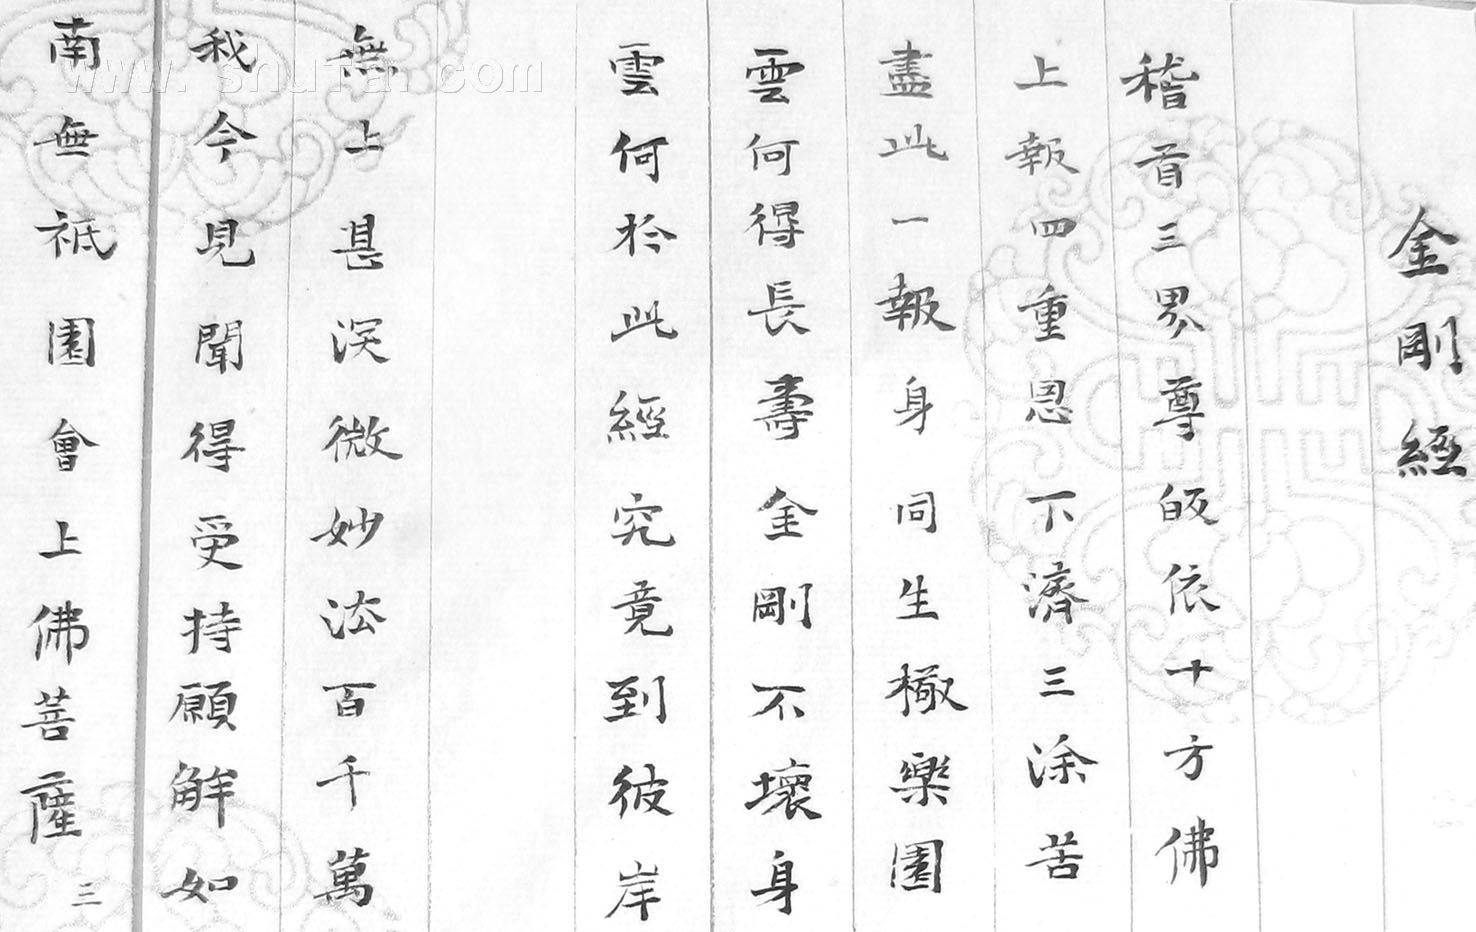 金剛經
稽首三界尊皈依十方佛
上報四重恩下濟三涂苦
盡此一報身同生極樂園
雲何得長壽金剛不壞身
雲何於此經究竟到彼岸
無上甚深微妙法百千萬
我今見聞得受持願解如
南無祇園會上佛菩薩 三
www.shufa.com